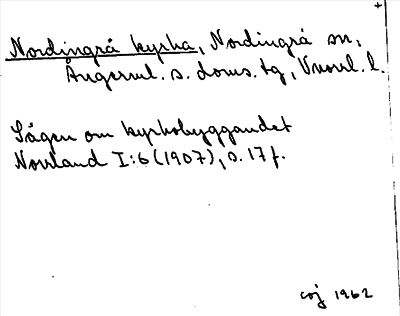 Nordingrå kyrka, Nordingrå sn,
Ångerml. s. doms. tg, Vnorl. l.
Sägen om kyrkobyggandet
Norrland I:6 (1907), s. 17 f.
coj 1962